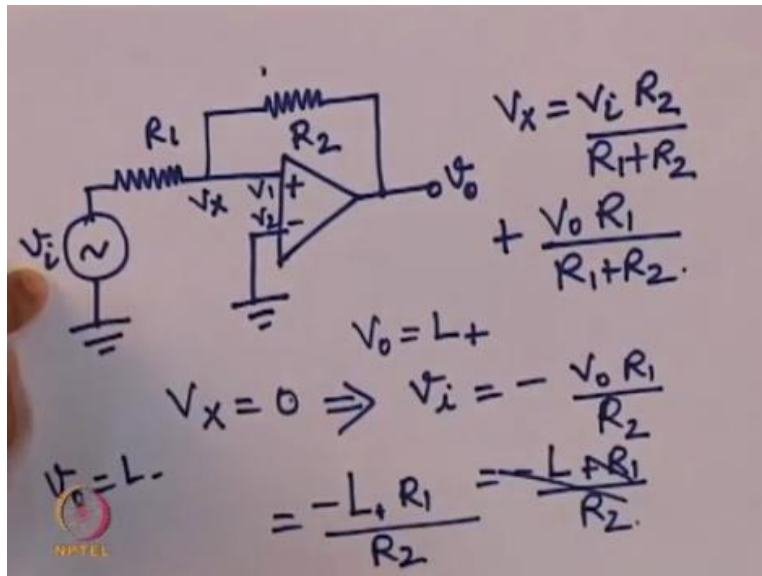 R1
R2
Vx
V1 +
V2 -
Vi
~
Vo
Vx = Vi R2 / R1+R2
+ Vo R1 / R1+R2.
Vo = L+
Vx = 0 ⇒ Vi = - Vo R1 / R2
Vo = L-
= -L+ R1 / R2 = -L+R1 / R2.
NPTEL